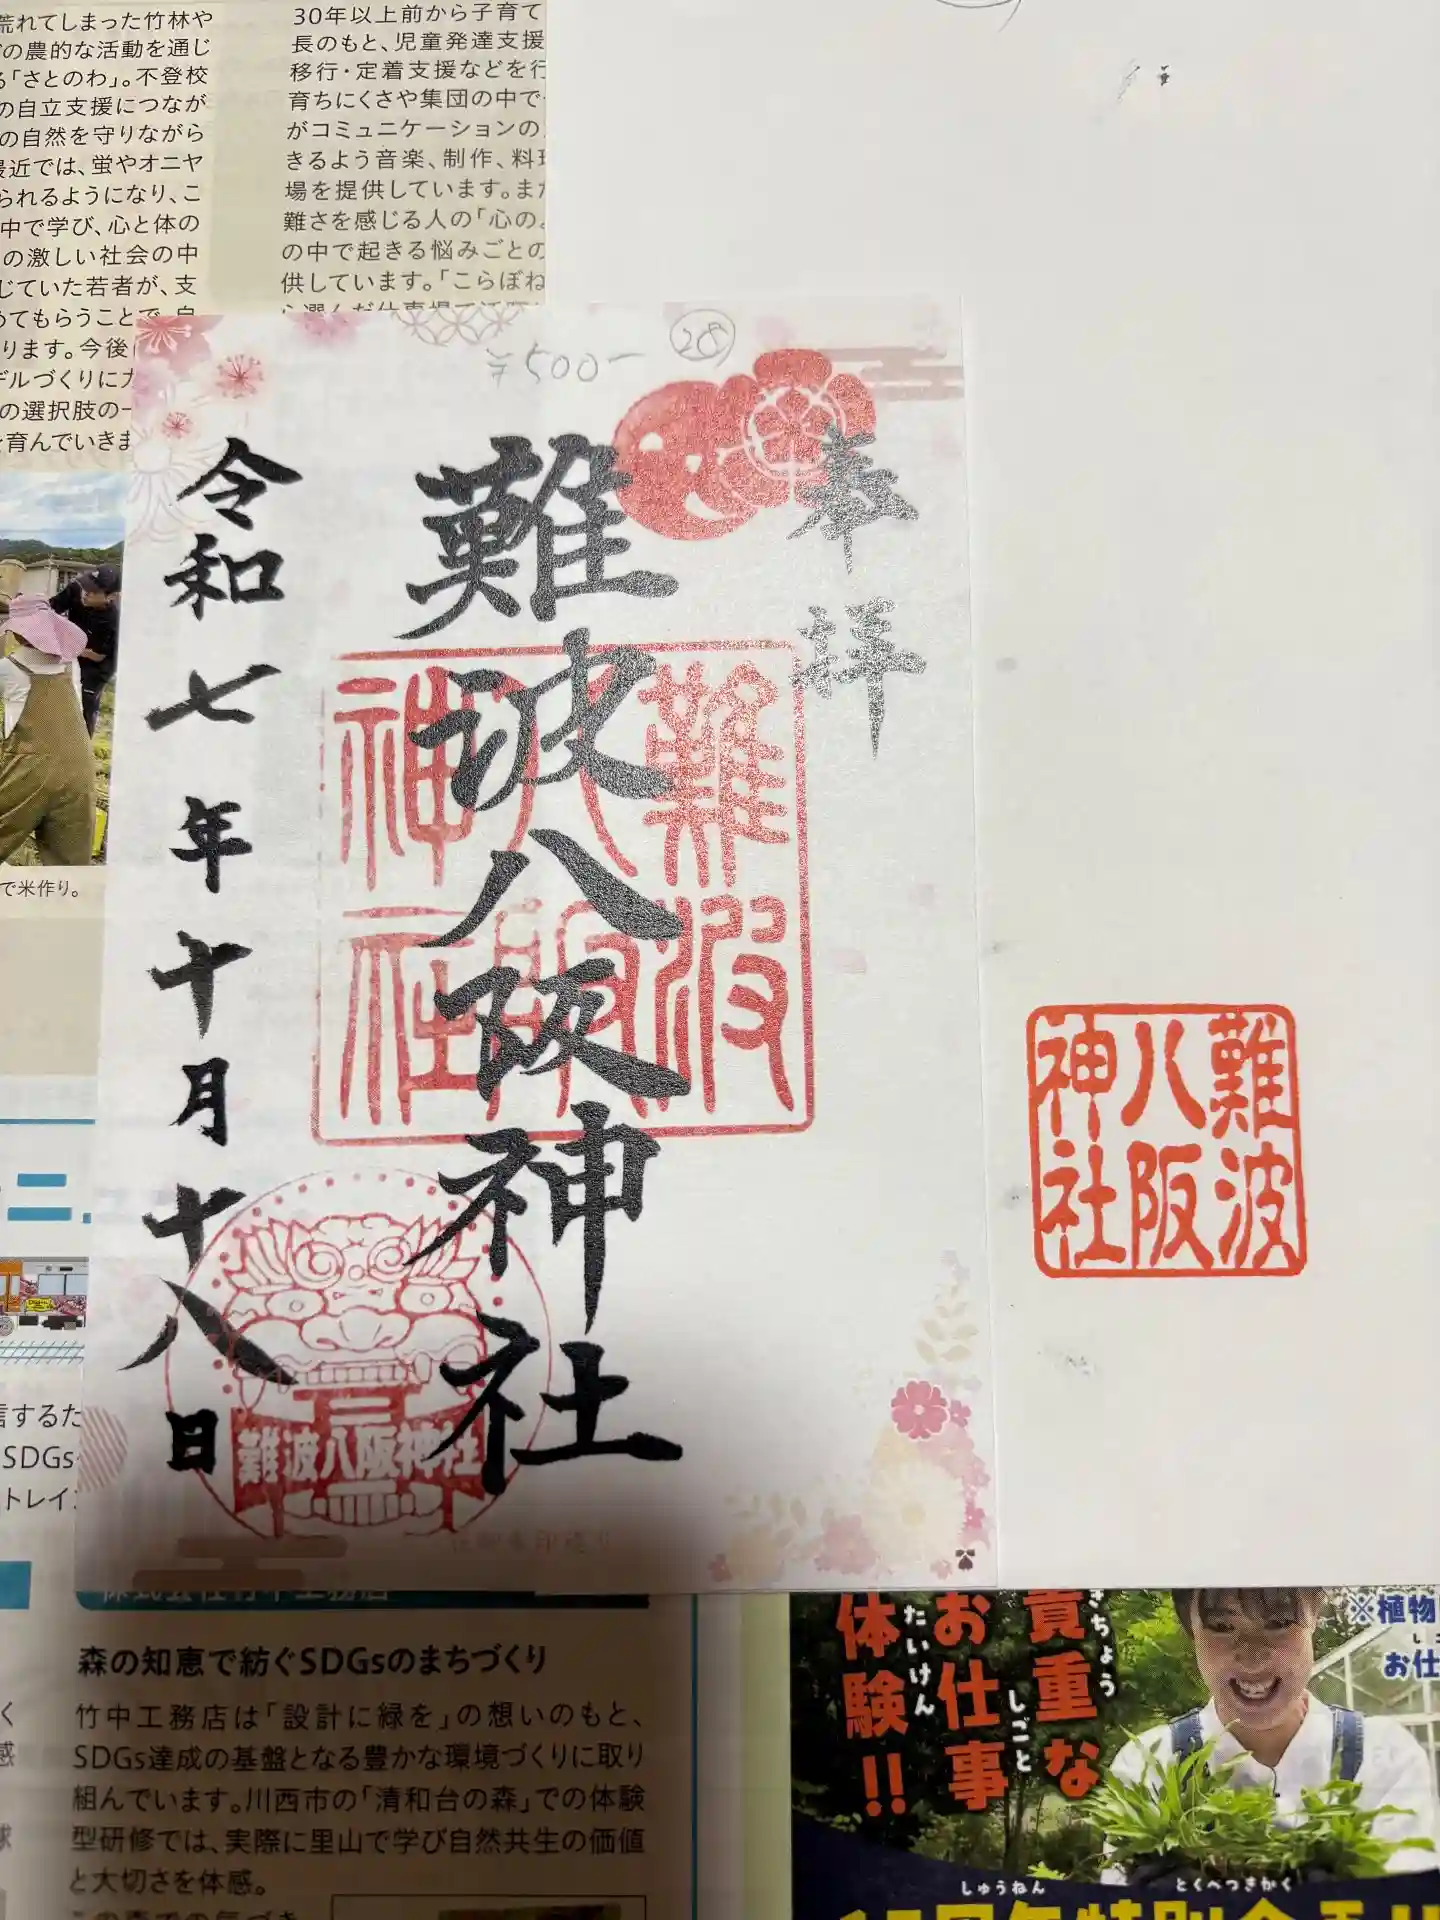 荒れてしまった竹林や
の農的な活動を通じ
る「さとのわ」。不登校
の自立支援につなが
の自然を守りながら
最近では、蛍やオニヤ
られるようになり、こ
中で学び、心と体の
の激しい社会の中
じていた若者が、支
めてもらうことで、自
ります。今後
デルづくりに力
の選択肢の一
を育んでいきま
で米作り。
30年以上前から子育て
長のもと、児童発達支援
移行・定着支援などを行
育ちにくさや集団の中で
がコミュニケーションの
きるよう音楽、制作、料理
場を提供しています。また
難さを感じる人の「心の
の中で起きる悩みごとの
供しています。「こらぼね
¥500-
奉拝
難波八阪神社
令和七年十月十八日
難波
八阪
神社
難波八阪神社
難波
八阪
神社
ニ
信するた
SDGs
トレイン
株式会社竹中工務店
森の知恵で紡ぐSDGsのまちづくり
竹中工務店は「設計に緑を」の想いのもと、
SDGs達成の基盤となる豊かな環境づくりに取り
組んでいます。川西市の「清和台の森」での体験
型研修では、実際に里山で学び自然共生の価値
と大切さを体感。
きちょう
貴重な
しごと
お仕事
たいけん
体験!!
※植物
お仕
しゅうねん
とくべつきかく